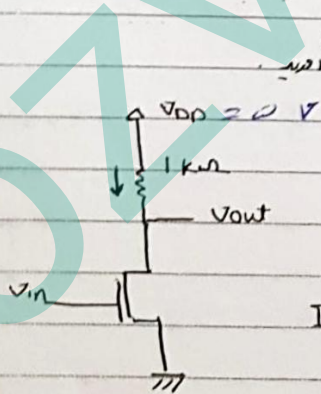 VDD = ۵ V
1 kΩ
Vout
Vin
I